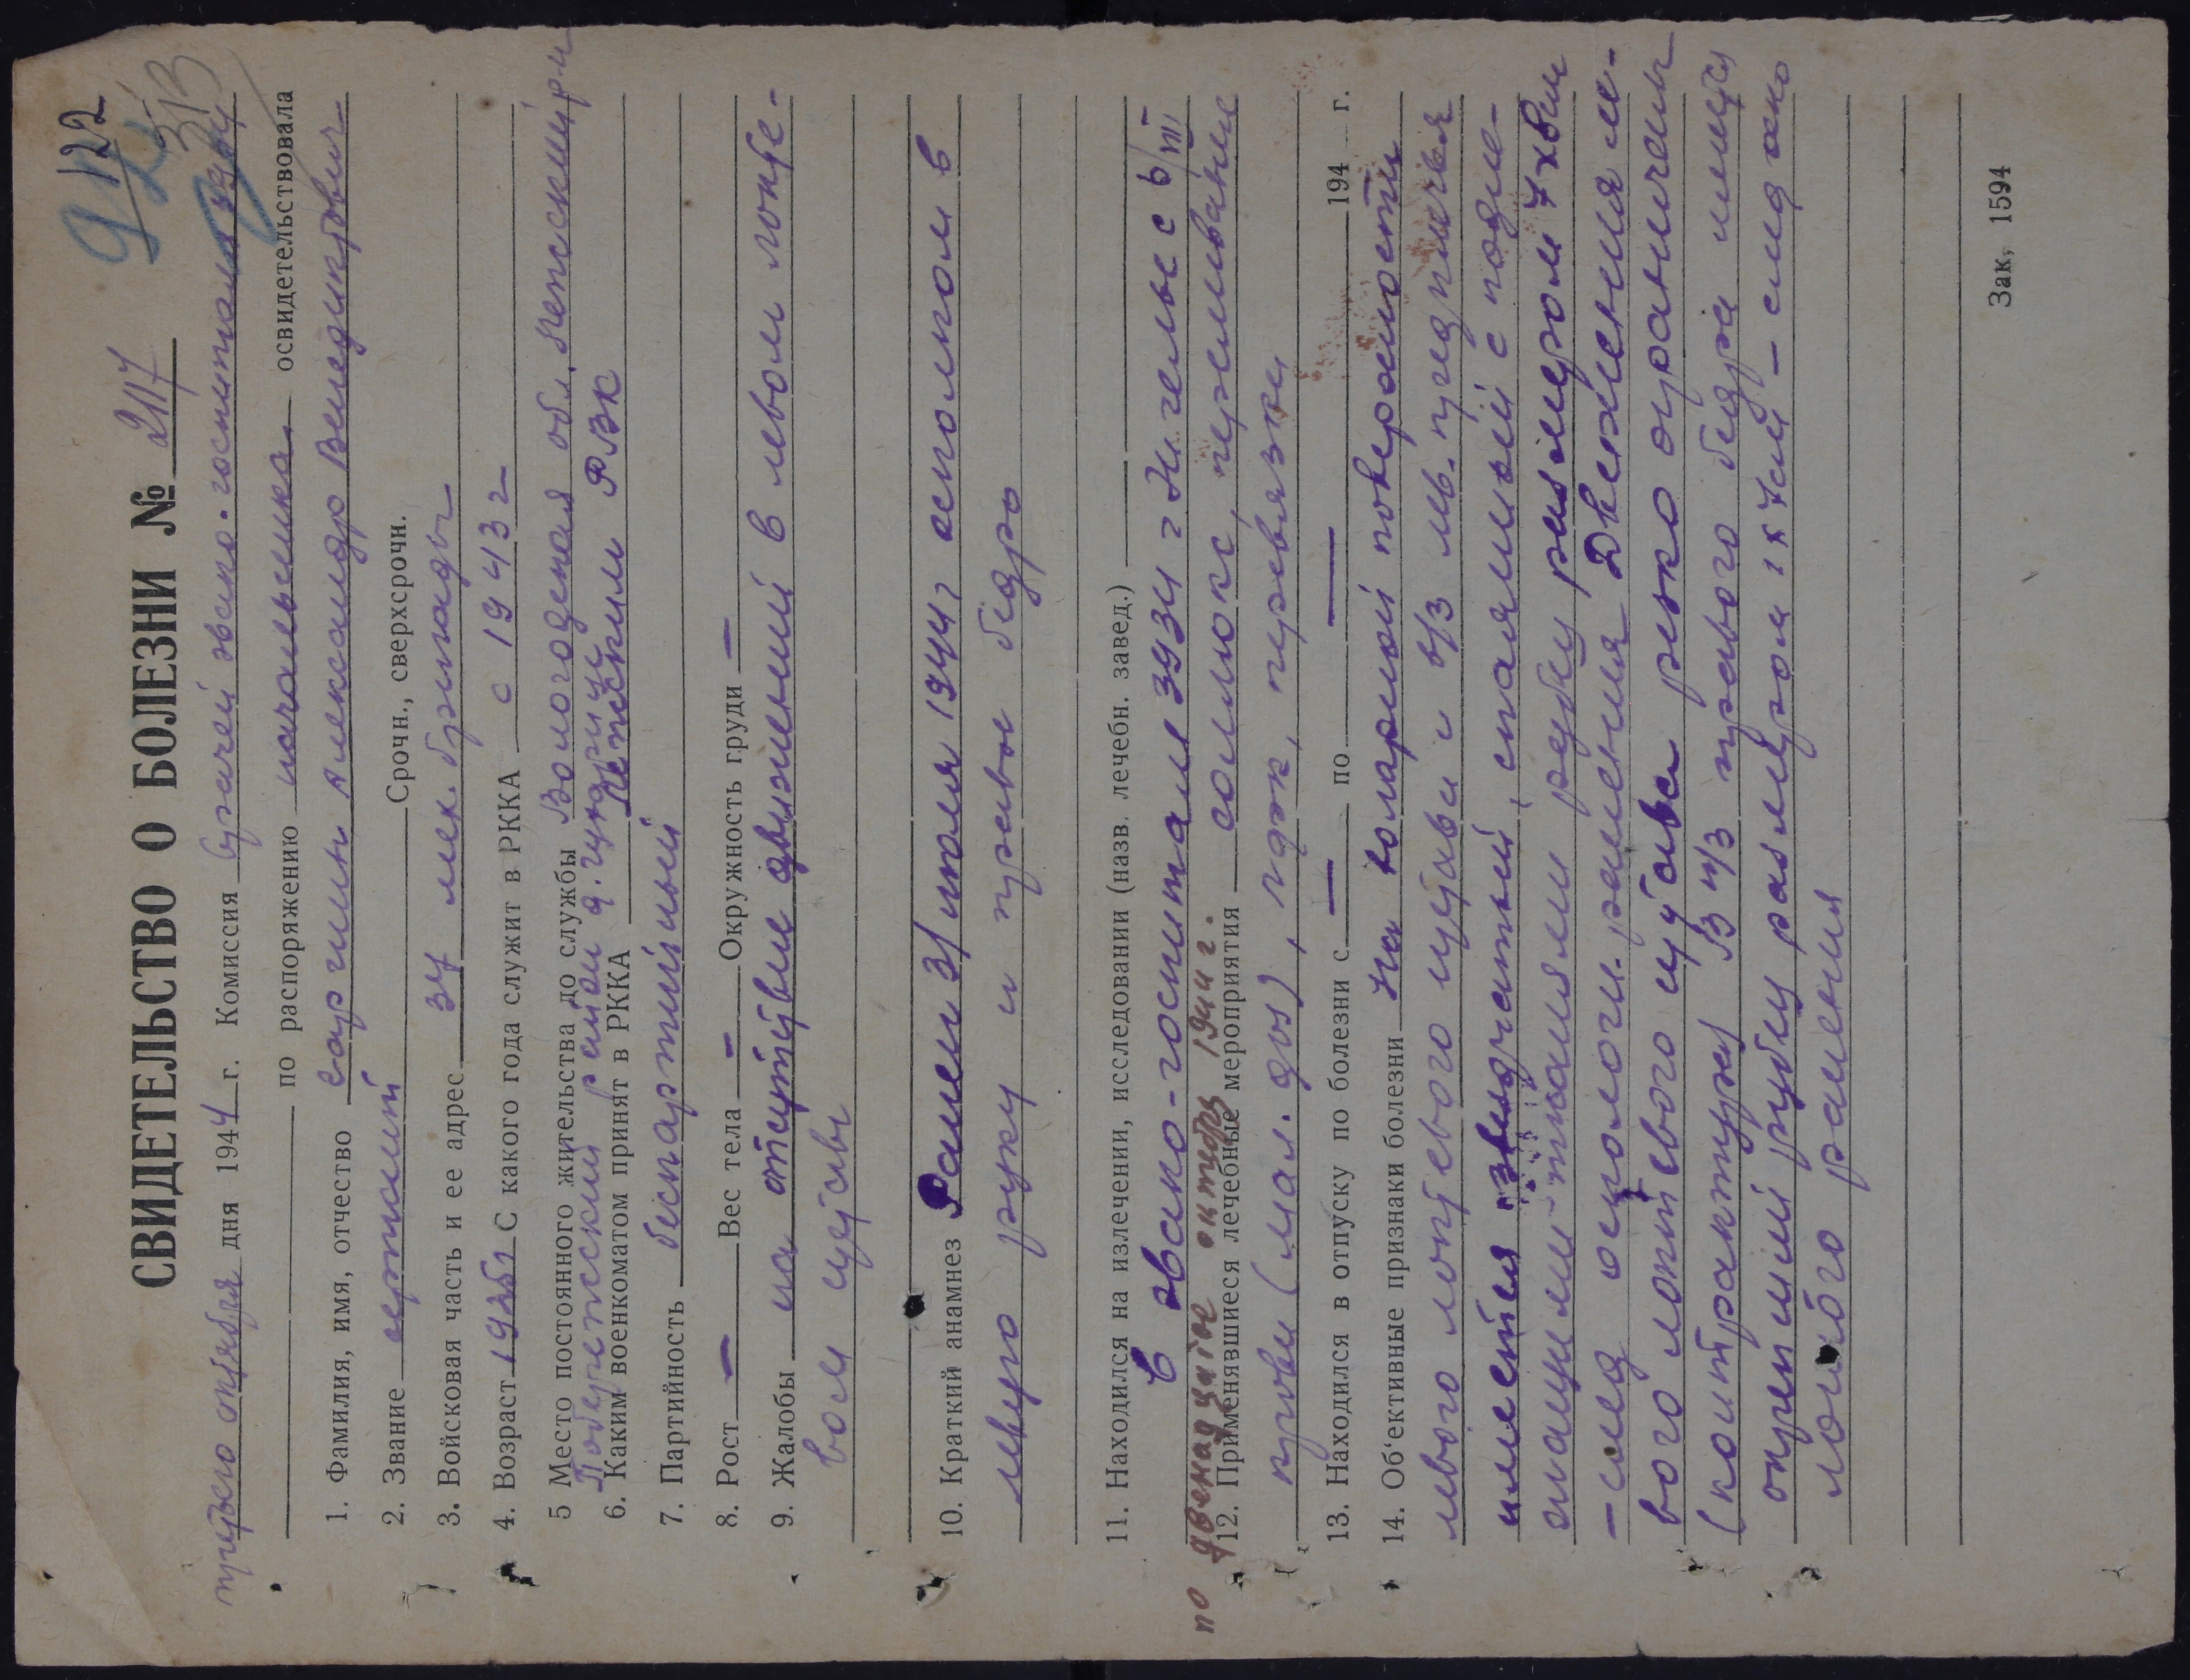 122
СВИДЕТЕЛЬСТВО О БОЛЕЗНИ № 2117
третьего октября дня 1944 г. Комиссия врачей эвако-госпиталя 3934
по распоряжению начальника освидетельствовала
1. Фамилия, имя, отчество Александр Венедиктович
2. Звание сержант Срочн., сверхсрочн.
3. Войсковая часть и ее адрес 34 мех. бригады
4. Возраст 1925 С какого года служит в РККА с 1943 г
5 Место постоянного жительства до службы Вологодская обл.
район д.
6. Каким военкоматом принят в РККА РВК
7. Партийность беспартийный
8. Рост — Вес тела — Окружность груди —
9. Жалобы на отсутствие движений в левом локте-
вом суставе
10. Краткий анамнез Ранен 3/ июля 1944 г осколком в
левую руку и правое бедро
11. Находился на излечении, исследовании (назв. лечебн. завед.)
в эвако-госпитале 3934 г Нигелье с 6/VIII
по двенадцатое октября 1944 г.
12. Применявшиеся лечебные мероприятия соллюкс, переливание
крови (мал. доз), лфк, перевязки
13. Находился в отпуску по болезни с — по — 194 г.
14. Об‘ективные признаки болезни На воларной поверхности
левого локтевого сустава и в/з лев. предплечья
имеется звездчатый, спаянный с подле-
жащими тканями рубец размером 7х8см
—след осколочн. ранения. Движения ле-
вого локтевого сустава резко ограничены
(контрактура) В н/з правого бедра имеется
окрепший рубец размером 1х7см — след оско
лочного ранения
Зак, 1594